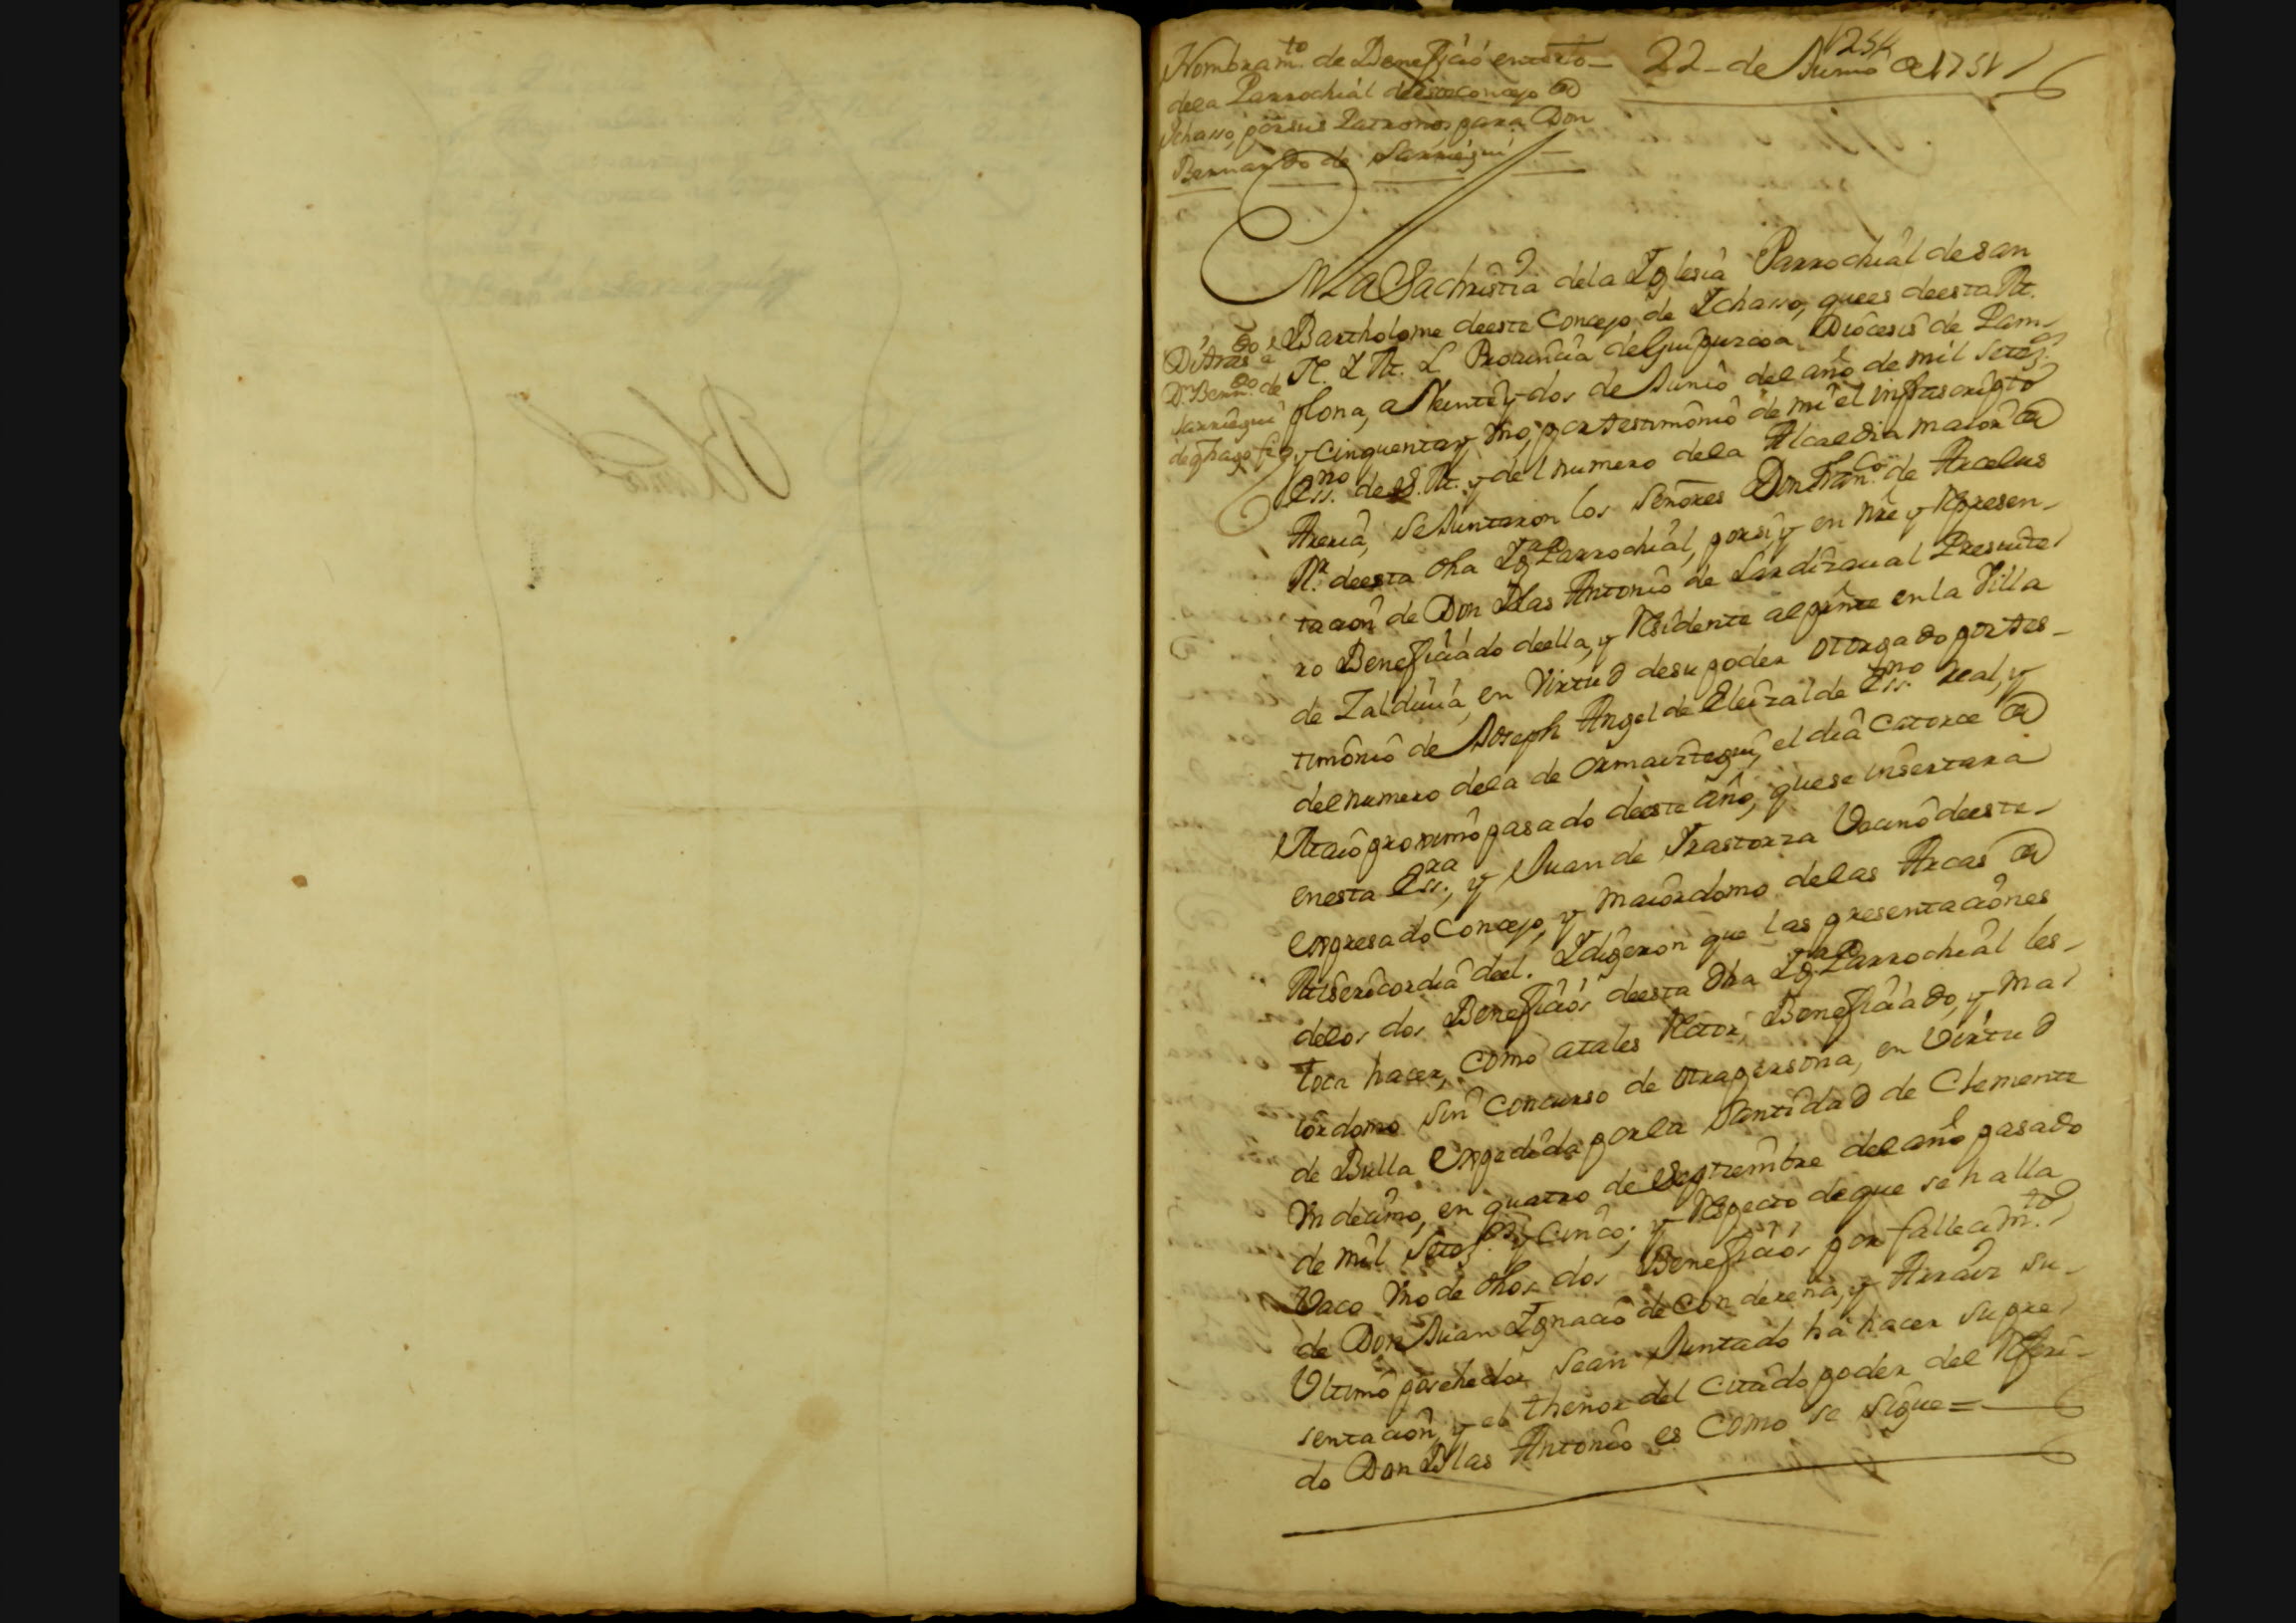 254
Nombram.to de Beneficio entero
dela Parrochial deeste Concejo de
Ichasso, porsus Patronos para Don
Bernardo de Sarriegui
22 de Junio de 1751
En La Sachristia dela Iglesia Parrochial de san
Bartholome deeste Concejo de Ichasso, quees deesta M.
N. Y M. L. Provincia de Guipuzcoa Diocesis de Pam-
plona, a Veinte y dos de Junio del año de mil setez.os
y Cinquenta y Vno, por testimonio de mi el infrascripto
Ess.no de S. M. y del numero dela Alcaldia maior de
Areria, se Juntaron los Señores Don Fran.co de Arcelus
R.r deesta dha Ig.a Parrochial, porsi, y en nre y represen-
tacion de Don Blas Antonio de Lardizaual Presuite-
ro Beneficiado deella, y Residente al pnte en la Villa
de Zalduuia, en Virtud desu poder otorgado por tes-
timonio de Joseph Angel de Eleizalde Ess.no Real, y
del numero dela de Ormaiztegui, el dia Catorce de
Maio proximo pasado deeste año, quese insertara
enesta Ess.ra, y Juan de Irastorza Vecino deeste
expresado Concejo, y maiordomo delas Arcas de
Misericordia deel. Y digeron que las presentaciones
delos dos Beneficios deesta dha Ig.a Parrochial les
toca hacer, Como atales Rector, Beneficiado, y Ma-
iordomo sin Concurso de otra persona, en Virtud
de Bulla Expedida por la Santidad de Clemente
Vndecimo, en quatro de Septiembre del año pasado
de mil Setez.os y Cinco; y Respecto deque se halla
Vaco Vno de dhos dos Beneficios por fallecim.to
de Don Juan Ignacio de Con derena, y Arraiz su
Vltimo posehedor sean Juntado ha hacer su pre-
sentacion, y el thenor del Citado poder del Referi-
do Don Blas Antonio es Como se sigue =
D.n Bern.do de
Sarriegui